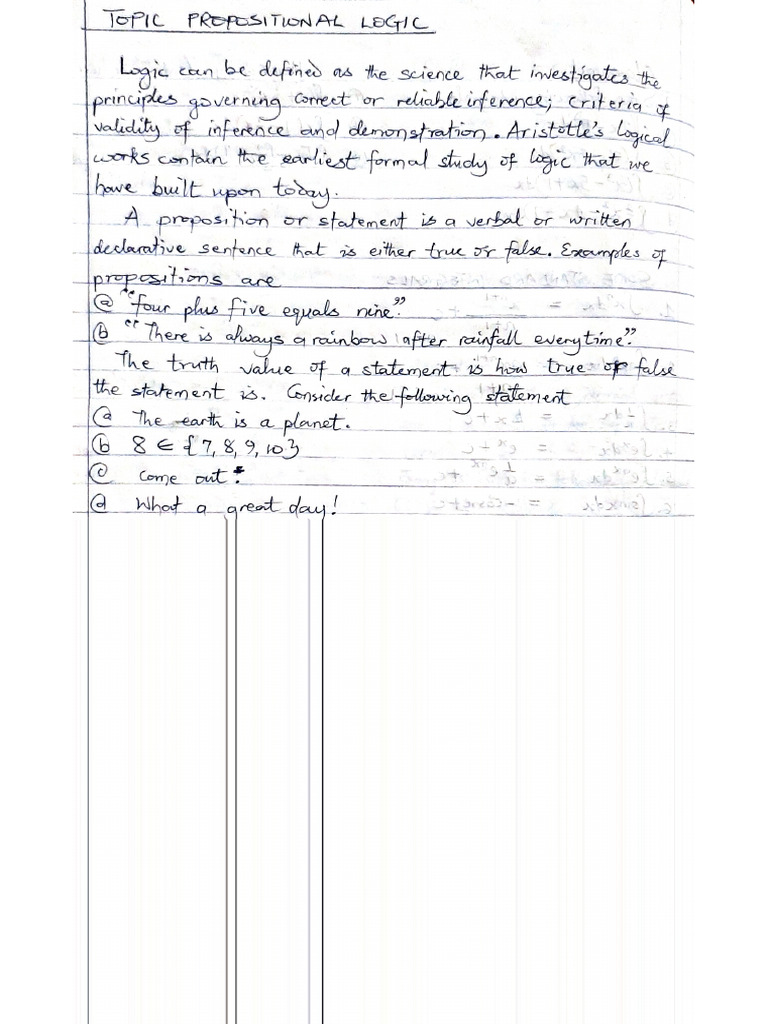 TOPIC PROPOSITIONAL LOGIC
Logic can be defined as the science that investigates the
principles governing correct or reliable inference; criteria of
validity of inference and demonstration. Aristotle's logical
works contain the earliest formal study of logic that we
have built upon today.
A proposition or statement is a verbal or written
declarative sentence that is either true or false. Examples of
propositions are
ⓐ "four plus five equals nine."
ⓑ "There is always a rainbow after rainfall everytime".
The truth value of a statement is how true or false
the statement is. Consider the following statement
ⓐ The earth is a planet.
ⓑ 8 ∈ {7, 8, 9, 10}
ⓒ Come out!
ⓓ What a great day!